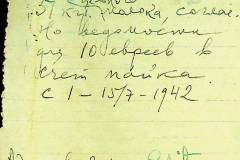 5 кгр. молока, соглас.
но ведомости
для 10 евреев в
счет пайка.
с 1 - 15/7 - 1942